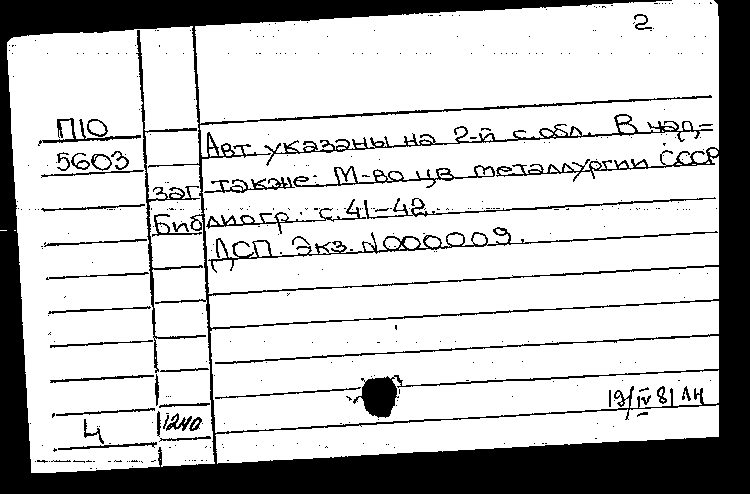 2
П10
5603
Авт. указаны на 2-й с. обл. В над-
заг. также: М-во цв металлургии СССР
Библиогр.: с. 41-42.
ДСП. Экз. N 000009.
4
1240
19/IV 81 ЛН